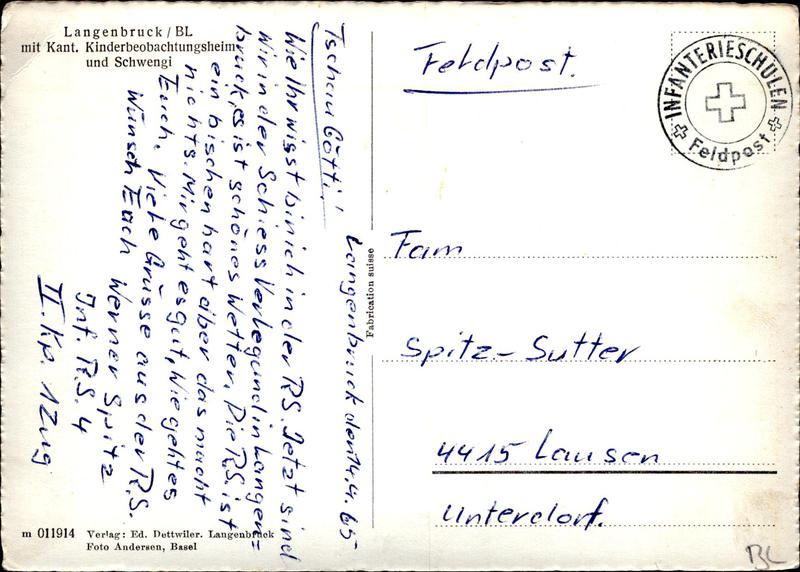 Langenbruck / BL
mit Kant. Kinderbeobachtungsheim
und Schwengi
Langenbruck den 14.4.65
Tschau Götti!
Wie Ihr wisst bin ich in der RS. Jetzt sind
Wir in der Schiess Verlegund in Langen=
bruck, es ist schönes Wetter. Die RS. ist
ein bischen hart aber das macht
nichts. Mir geht es gut, Wie geht es
Euch. Viele Grüsse aus der R.S.
Wünsch Euch Werner Spitz
Inf. R.S. 4
II. Kp. 1 Zug
m 011914 Verlag: Ed. Dettwiler. Langenbruck
Foto Andersen, Basel
Fabrication suisse
Feldpost.
INFANTERIESCHULEN
Feldpost
Fam
Spitz-Sutter
4415 Lausen
Unterdorf.
BL